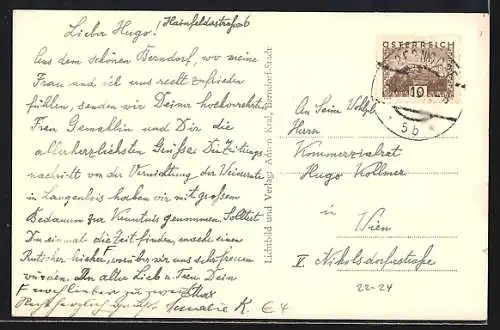 Lieber Hugo! / Hainfeldastraße 6
Aus dem schönen Berndorf, wo meine
Frau und ich uns recht zufrieden
fühlen, senden wir Deiner hochverehrten
Frau Gemahlin und Dir die
allerherzlichsten Grüße. Die Zeitungs
nachricht von der Verwaltung der
in Langenlois haben wir mit großem
Bedauern zur Kenntnis genommen. Solltest
Du einmal die Zeit finden, mache einen
Rutscher hieher, worüber wir uns sehr freuen
würden. In alter Lieb u. Treu Dein
Max
Recht herzlich grüßt K. € 4
Lichtbild und Verlag: Anton Kral, Berndorf-Stadt
ÖSTERREICH
10
5b
An Seine
Herrn
Kommerzialrat
Hugo Wollner
in
Wien
V Nikolsdorfastraße
22-24